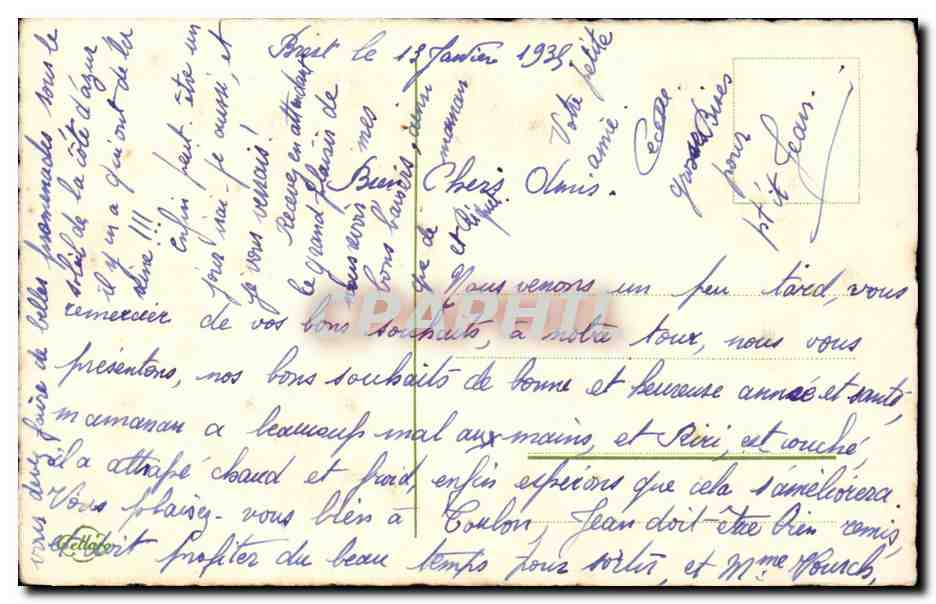 Brest le 13 Janvier 1935
Bien Chers Amis.
Nous venons un peu tard, vous
remercier de vos bons souhaits, à notre tour, nous vous
présentons, nos bons souhaits de bonne et heureuse année et santé,
mamanan a beaucoup mal aux mains, et Riri, est couché,
il a attrapé chaud et froid, enfin espérons que cela s'améliorera
Vous plaisez-vous bien à Toulon, Jean doit-être bien remis,
et doit profiter du beau temps pour sortir, et Mme Hourch,
vous devez faire de belles promenades sous le
soleil de la côte d'azur
il y en a qui ont de la
veine!!!
Enfin peut être un
jour irai-je aussi, et
je vous verrais!
Recevez en attendant
le grand plaisir de
vous revoir mes
bons baisers, ainsi
que de maman
et Riri
Votre petite
amie
Cécette
grosses Bises
pour
p'tit Jean.
CPAPHIL
Tellator